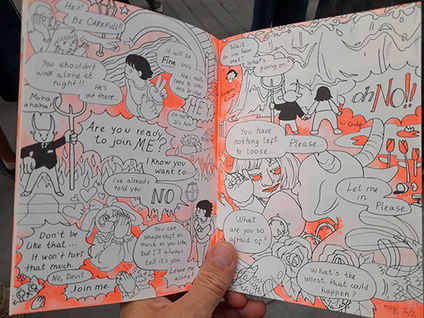 HEY!
BE CAREFULL!!
You shouldn't
walk alone at
night!!
He's
out there
It will be
Fine
And I really
need to cross
this bridge
HEY
Muha
ahaha!
Are you ready
to join ME?
I know you
want to...
I've already
told you,
NO
Don't be
like that...
It won't hurt
that much.
No, Devil!
Join me.
You can
shapeshift as
much as you like,
but I'll always
tell it's you.
Leave me
alone!
Wait...
do you
hear that?
What's
going on?
oh NO!!
Gulp
You have
nothing left
to loose.
Please
Let me
in.
Please.
What
are you so
afraid of?
What's the
worst that could
happen?